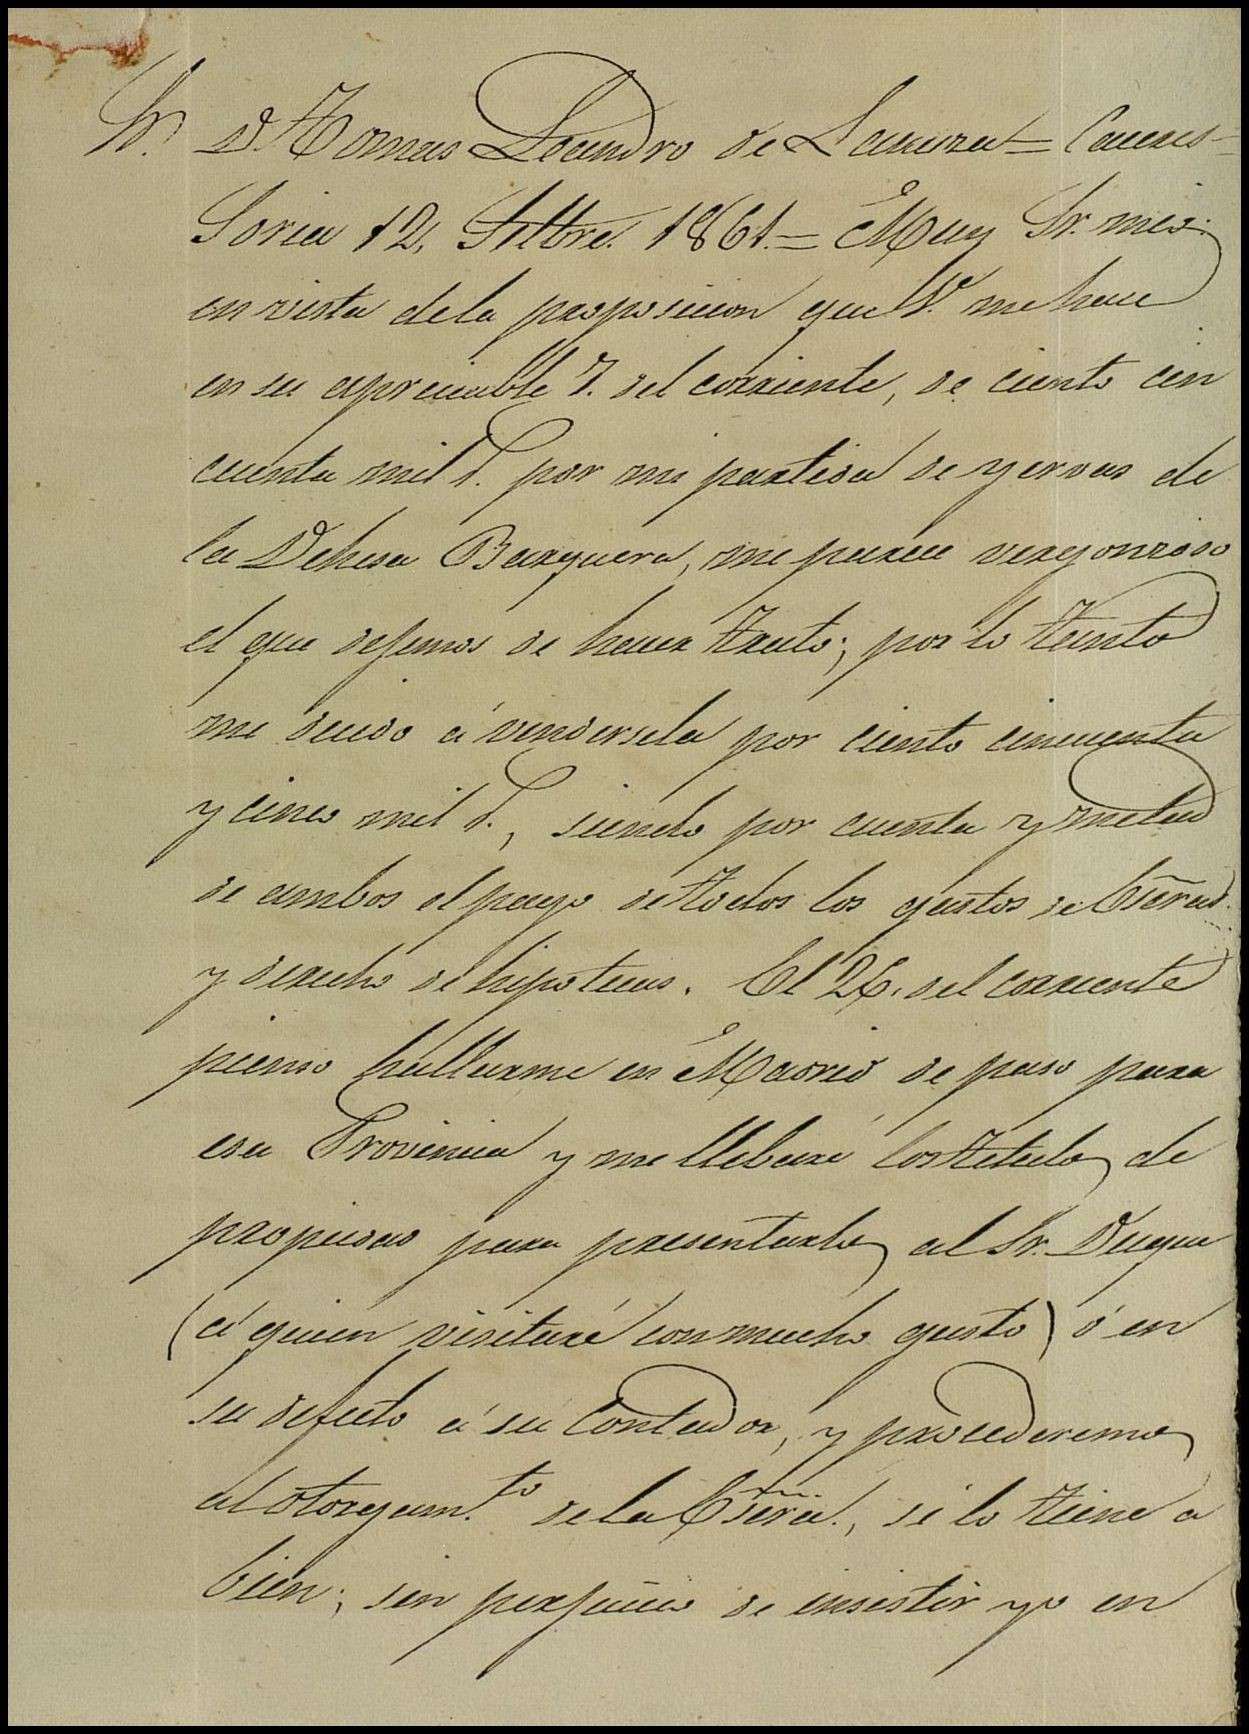 Sr. D. Tomas Leandro de Lanuza = Caceres =
Soria 12, Setbre. 1861. = Muy Sr. mio:
en vista de la proposicion que V. me hace
en su apreciable 7. del corriente, de ciento cin
cuenta mil r. por mi partida de yervas de
la Dehesa Barquera, me parece vergonzoso
el que dejemos de hacer trato; por lo tanto
me decido á vendersela por ciento cincuenta
y cinco mil r., siendo por cuenta y mitad
de ambos el pago de todos los gastos de Escras.
y derecho de hipotecas. El 26. del corriente
pienso hallarme en Madrid de paso para
esa Provincia y me llebaré los titulos de
propiedad para presentarlos al Sr. Duque
(á quien visitaré con mucho gusto) ó en
su defecto á su Contador, y procederemos
al otorgam.to de la Escra., si lo tiene a
bien; sin perjuicio de insistir yo en